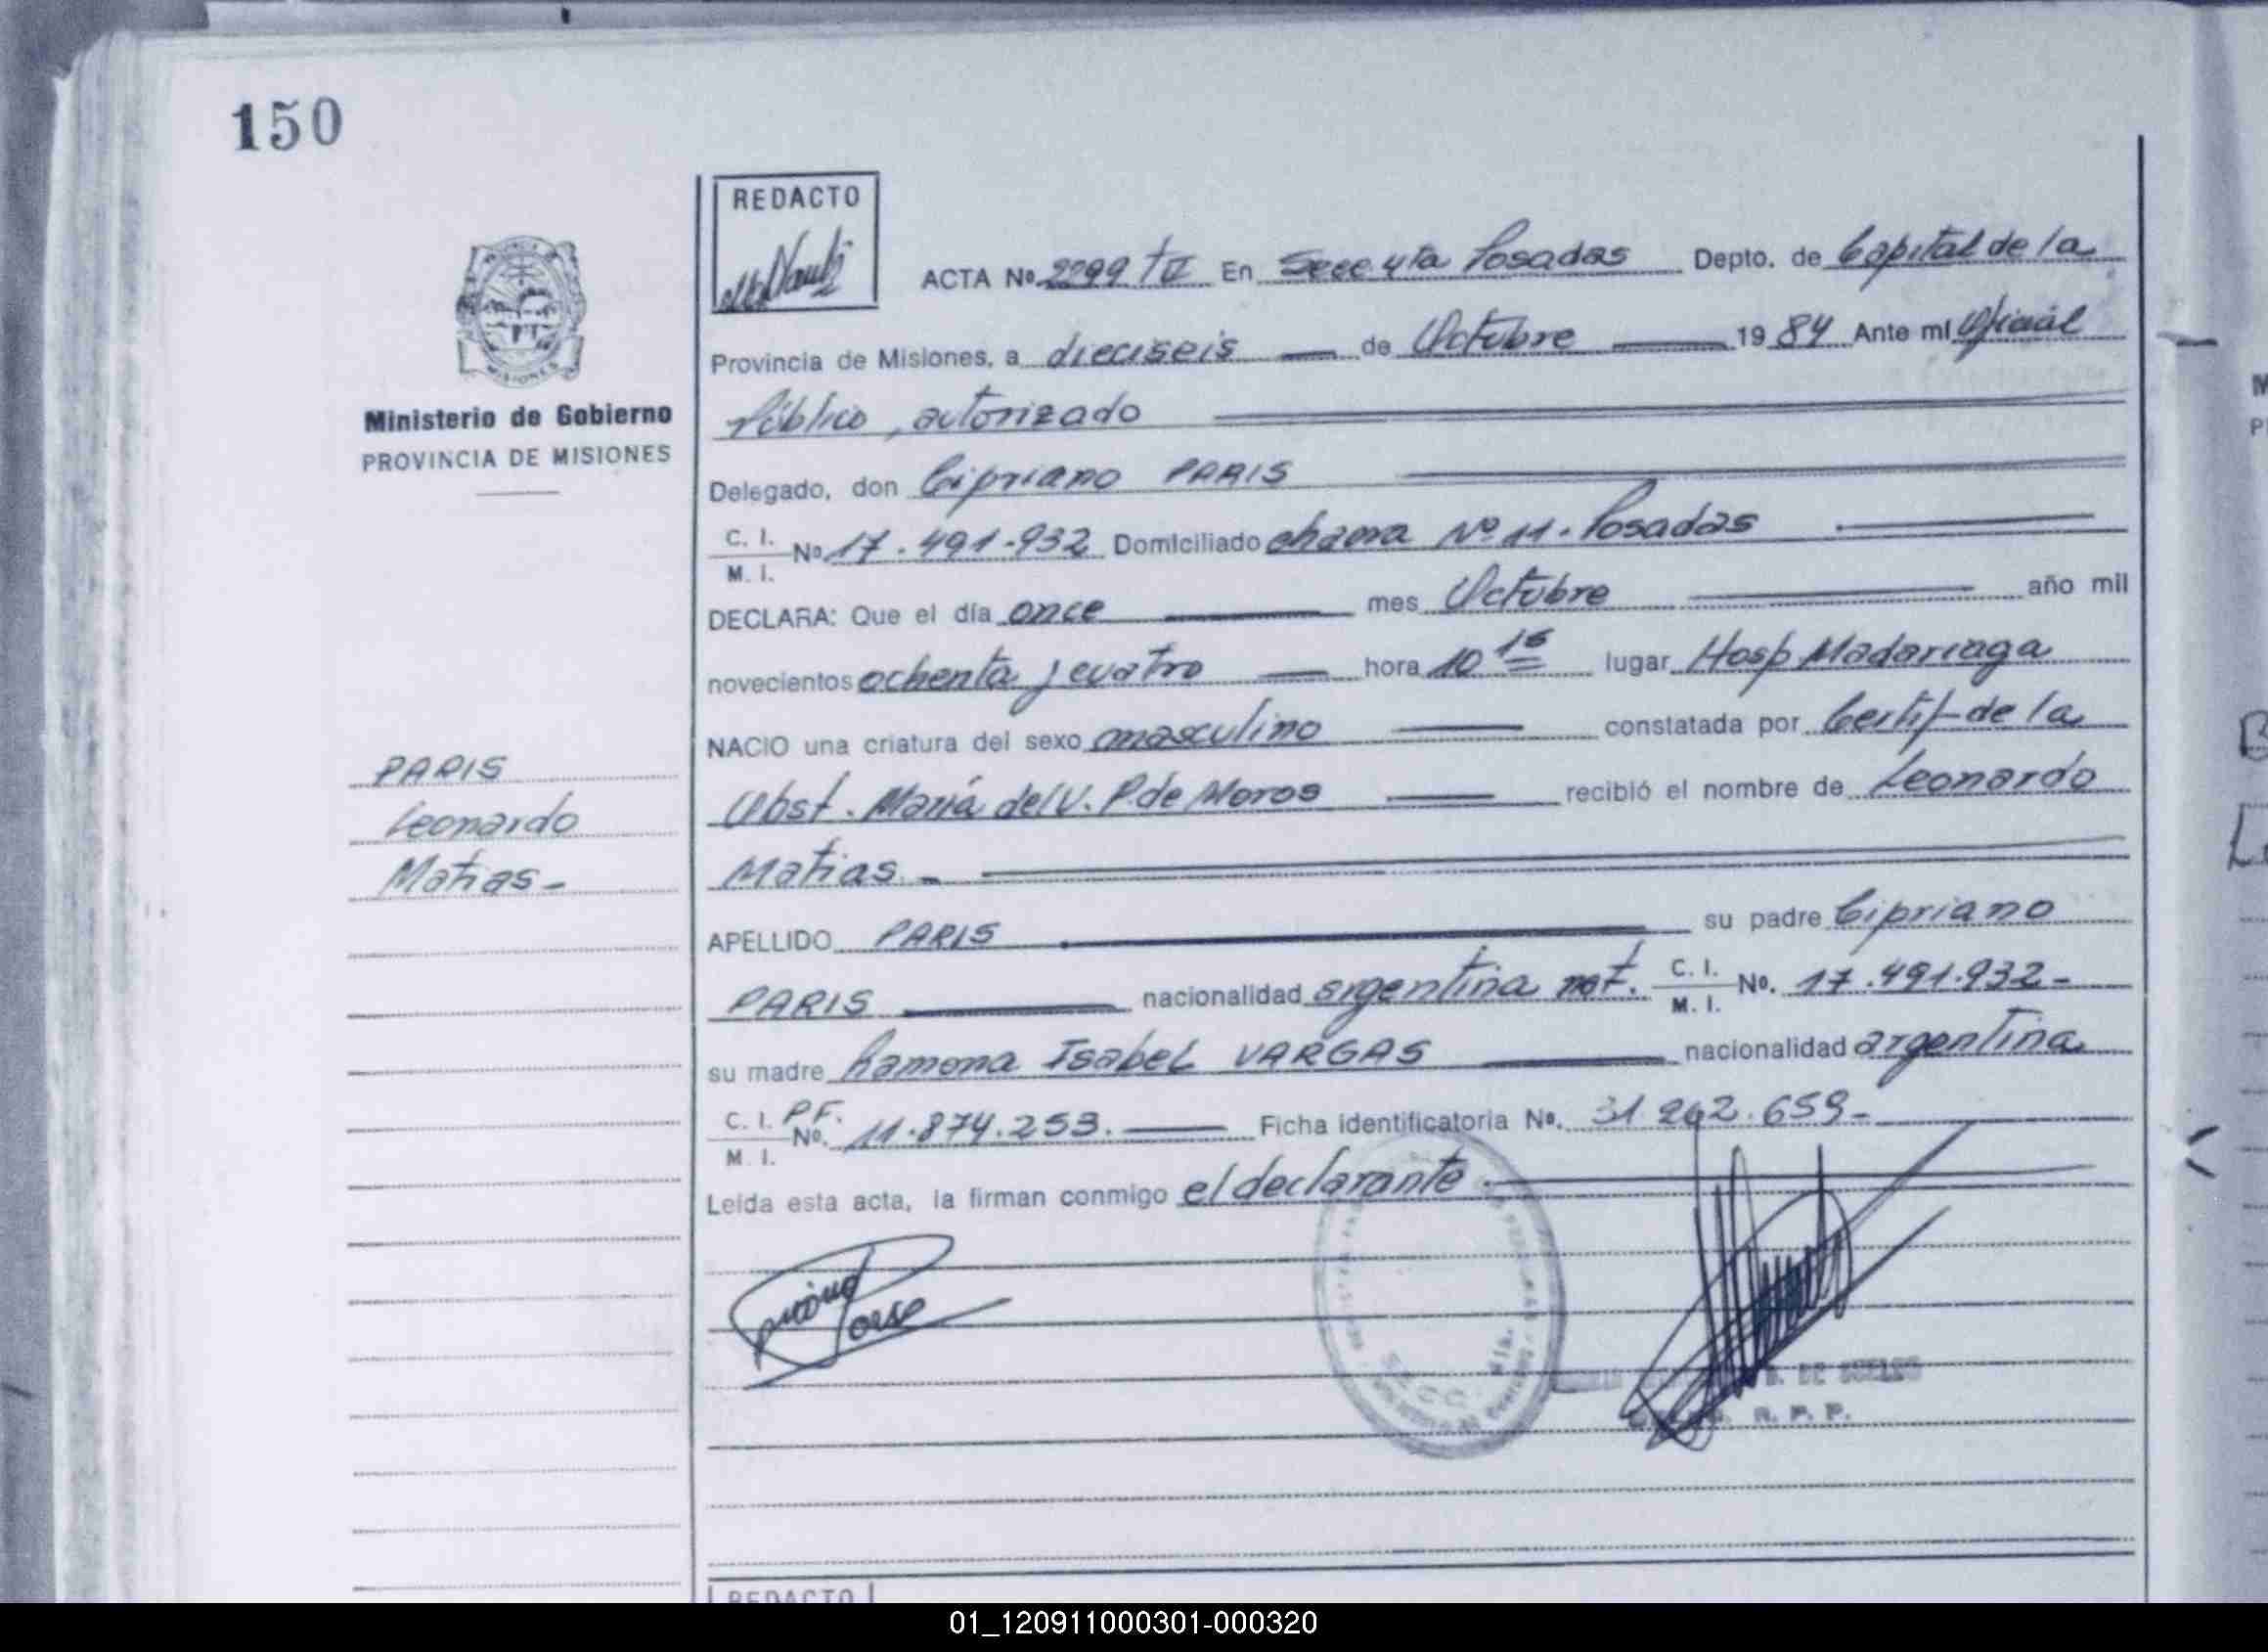 150
REDACTO
ACTA Nº 2299 En Secc 4ta Posadas Depto. de Capital de la
Ministerio de Gobierno
PROVINCIA DE MISIONES
Provincia de Misiones, a dieciseis de Octubre 1984 Ante mí Oficial
Público, autorizado
Delegado, don Cipriano PARIS
C. I. M. I. Nº 17.491.932 Domiciliado chacra Nº 11. Posadas
DECLARA: Que el día once mes Octubre año mil
novecientos ochenta y cuatro hora 10 15 lugar Hosp Madariaga
NACIO una criatura del sexo masculino constatada por Certif de la
Obst. María del V. P. de Moros recibió el nombre de Leonardo
Matias -
PARIS
Leonardo
Matias -
APELLIDO PARIS su padre Cipriano
PARIS nacionalidad argentina nat. C. I. M. I. No. 17.491.932-
su madre Ramona Isabel VARGAS nacionalidad argentina
C. I. P.F. M. I. No. 11.874.253. Ficha identificatoria No. 31 242.659-
Leida esta acta, la firman conmigo el declarante.
R. P. P.
REDACTO
01_120911000301-000320